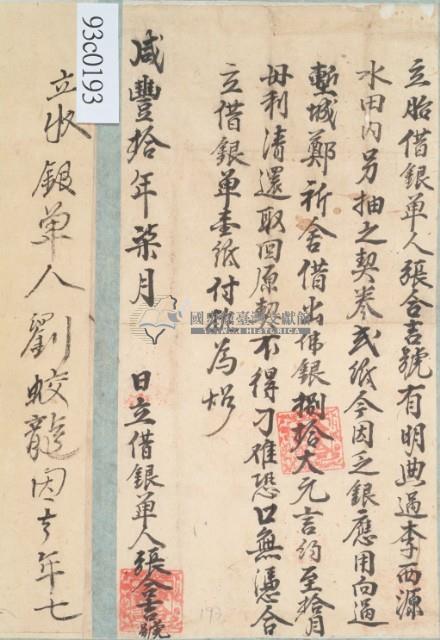 立胎借銀单人張合吉號有明典過李西源
水田内另抽之契券弍紙今因乏銀應用向過
塹城鄭祈舍借出佛銀捌拾大元言約至拾月
母利清還取回原契不得刁难恐口無憑合
立借銀单壹紙付執為炤
咸豐拾年柒月 日立借銀单人張合吉號
立收銀单人劉蛟龍因去年七
93c0193
國史館臺灣文獻館
TAIWAN HISTORICA
193